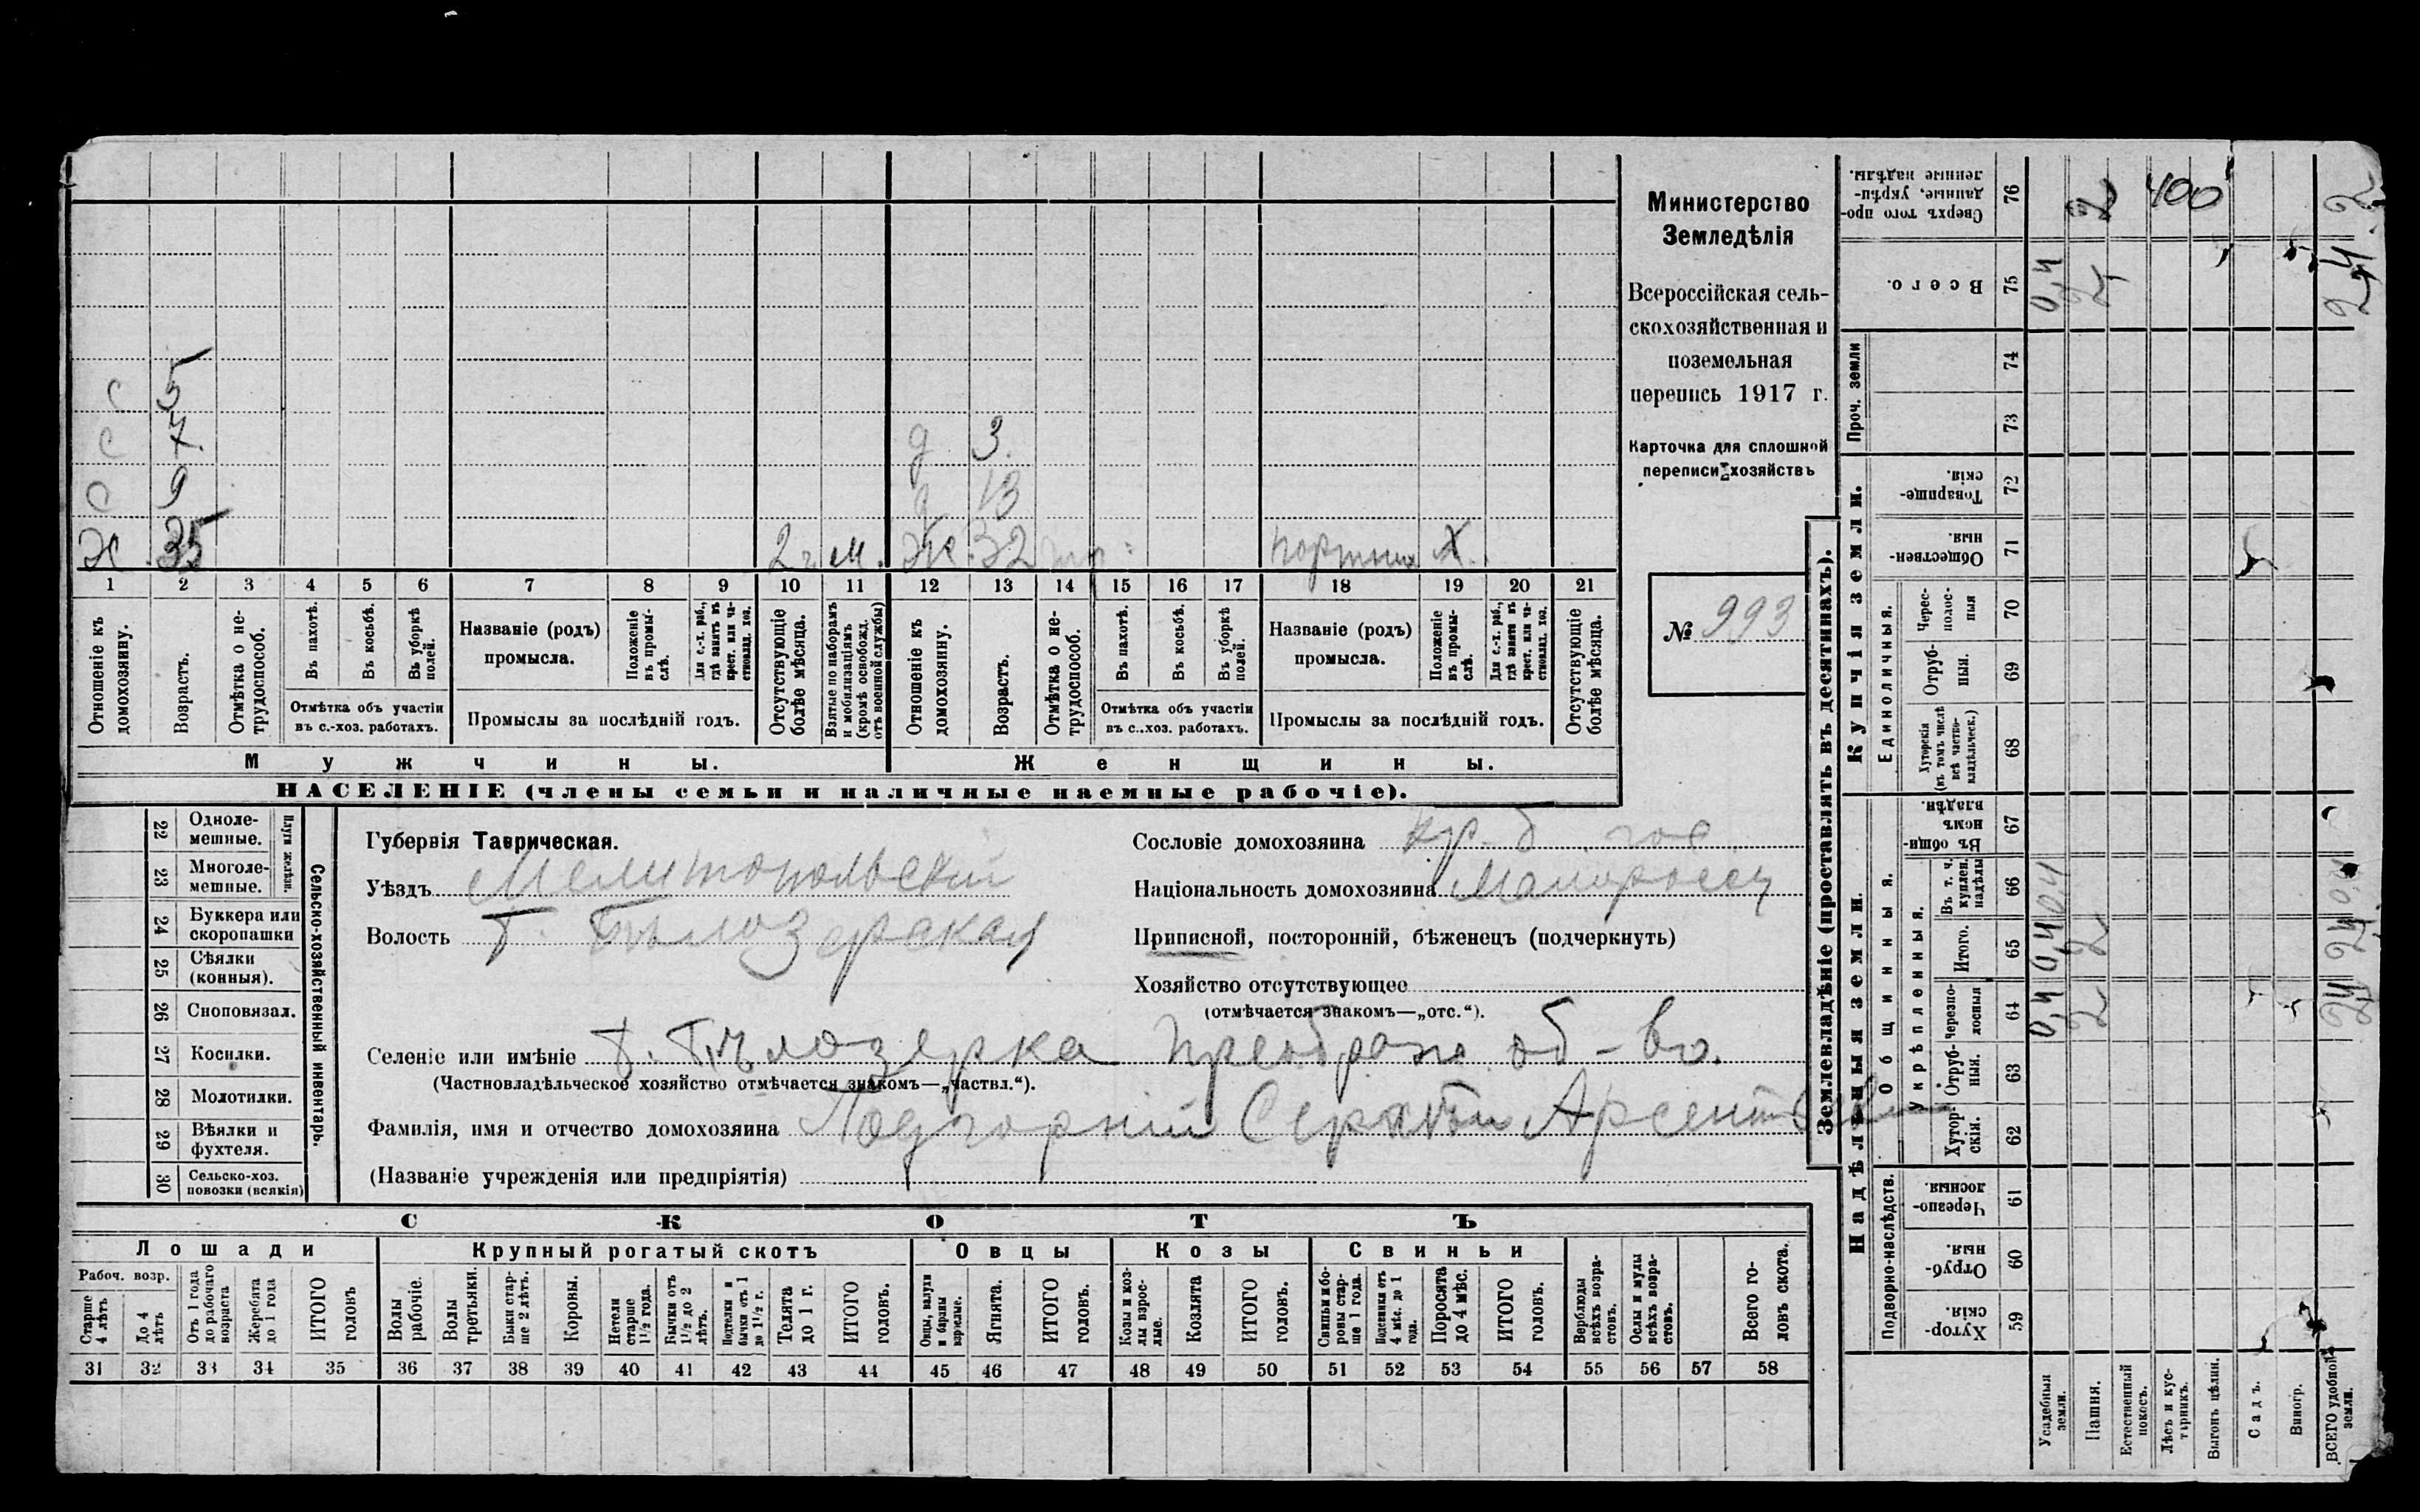 С 5
С 7 д 3
С 9 д 13
Х 35 2 г. м. Ж 32 портниха Х
1 2 3 4 5 6 7 8 9 10 11 12 13 14 15 16 17 18 19 20 21
Отношеніе къ домохозяину.
Возрастъ.
Отмѣтка о не-трудоспособ.
Въ пахотѣ.
Въ косьбѣ.
Въ уборкѣ полей.
Отмѣтка объ участіи
въ с.-хоз. работахъ.
Названіе (родъ)
промысла.
Положеніе въ промы-слѣ.
Для с.-х. раб., гдѣ занятъ въ крест. или ча-стновлад. хоз.
Промыслы за послѣдній годъ.
Отсутствующіе болѣе мѣсяца.
Взятые по наборамъ и мобилизаціямъ (кромѣ освобожд. отъ военной службы)
Отношеніе къ домохозяину.
Возрастъ.
Отмѣтка о не-трудоспособ.
Въ пахотѣ.
Въ косьбѣ.
Въ уборкѣ полей.
Отмѣтка объ участіи
въ с.-хоз. работахъ.
Названіе (родъ)
промысла.
Положеніе въ промы-слѣ.
Для с.-х. раб., гдѣ занята въ крест. или ча-стновлад. хоз.
Промыслы за послѣдній годъ.
Отсутствующіе болѣе мѣсяца.
Мужчины. Женщины.
НАСЕЛЕНІЕ (члены семьи и наличные наемные рабочіе).
Министерство
Земледѣлія
Всероссійская сель-
скохозяйственная и
поземельная
перепись 1917 г.
Карточка для сплошной
переписи хозяйствъ
№ 993
Сельско-хозяйственный инвентарь.
Плуги желѣзн.
22 Одноле-мешные.
23 Многоле-мешные.
24 Буккера или скоропашки
25 Сѣялки (конныя).
26 Сноповязал.
27 Косилки.
28 Молотилки.
29 Вѣялки и фухтеля.
30 Сельско-хоз. повозки (всякія)
Губернія Таврическая.
Уѣздъ Мелитопольскій
Волость Т. Бѣлозерская
Сословіе домохозяина кр. б. гос.
Національность домохозяина Малороссъ
Приписной, посторонній, бѣженецъ (подчеркнуть)
Хозяйство отсутствующее
(отмѣчается знакомъ—„отс.“).
Селеніе или имѣніе Т. Бѣлозерка Преображ. об-во.
(Частновладѣльческое хозяйство отмѣчается знакомъ—„частвл.“).
Фамилія, имя и отчество домохозяина Подгорній Сергѣй Арсентьев
(Названіе учрежденія или предпріятія)
СКОТЪ
Лошади Крупный рогатый скотъ Овцы Козы Свиньи
Рабоч. возр.
Старше 4 лѣтъ
До 4 лѣтъ
Отъ 1 года до рабочаго возраста
Жеребята до 1 года
ИТОГО головъ
Волы рабочіе.
Волы третьяки.
Быки стар-ше 2 лѣтъ.
Коровы.
Нетели старше 1½ года.
Бычки отъ 1½ до 2 лѣтъ.
Подтелки и бычки отъ 1 до 1½ г.
Телята до 1 г.
ИТОГО головъ.
Овцы, валухи и бараны взрослые.
Ягнята.
ИТОГО головъ.
Козы и коз-лы взрос-лые.
Козлята
ИТОГО головъ.
Свиньи и бо-ровы стар-ше 1 года.
Подсвинки отъ 4 мѣс. до 1 года.
Поросята до 4 мѣс.
ИТОГО головъ.
Верблюды всѣхъ возра-стовъ.
Ослы и мулы всѣхъ возра-стовъ.
Всего го-ловъ скота.
31 32 33 34 35 36 37 38 39 40 41 42 43 44 45 46 47 48 49 50 51 52 53 54 55 56 57 58
Землевладѣніе (проставлять въ десятинахъ).
Надѣльныя земли. Купчія земли. Проч. земли
Подворно-наслѣдств.
Общинныя.
Укрѣпленныя.
Единоличныя.
Хутор-скія. 59
Отруб-ныя. 60
Черезпо-лосныя 61
Хутор-скія. 62
Отруб-ныя. 63
Черезпо-лосныя 64
Итого. 65
Въ т. ч. куплен. надѣлы 66
Въ общи-номъ владѣн. 67
Хуторскія (въ томъ числѣ всѣ частно-владѣльческ.) 68
Отруб-ныя. 69
Черес-полос-ныя 70
Обществен-ныя. 71
Товарище-скія. 72
73
74
Всего. 75
Сверхъ того про-данные, укрѣп-ленные надѣлы. 76
Усадебныя земли. 0,4 0,4 0,4 0,4
Пашня. 2 2 2 2
Естественный покосъ.
Лѣсъ и кус-тарникъ. 400
Выгонъ цѣлин.
Садъ.
Виногр.
ВСЕГО удобной земли. 2,4 2,4 0,4 2,4 2